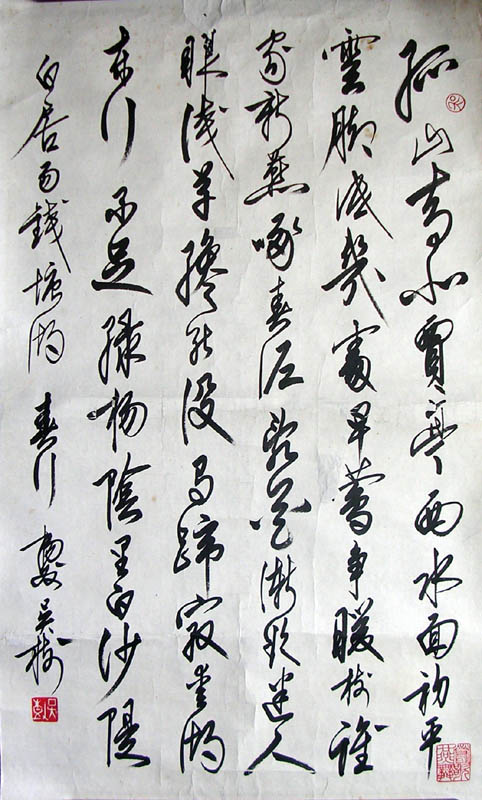 孤山寺北賈亭西水面初平
雲脚低幾處早鶯爭暖樹誰
家新燕啄春泥亂花漸欲迷人
眼淺草纔能沒馬蹄最愛湖
東行不足綠楊陰里白沙隄
白居易錢塘湖春行 吳樹